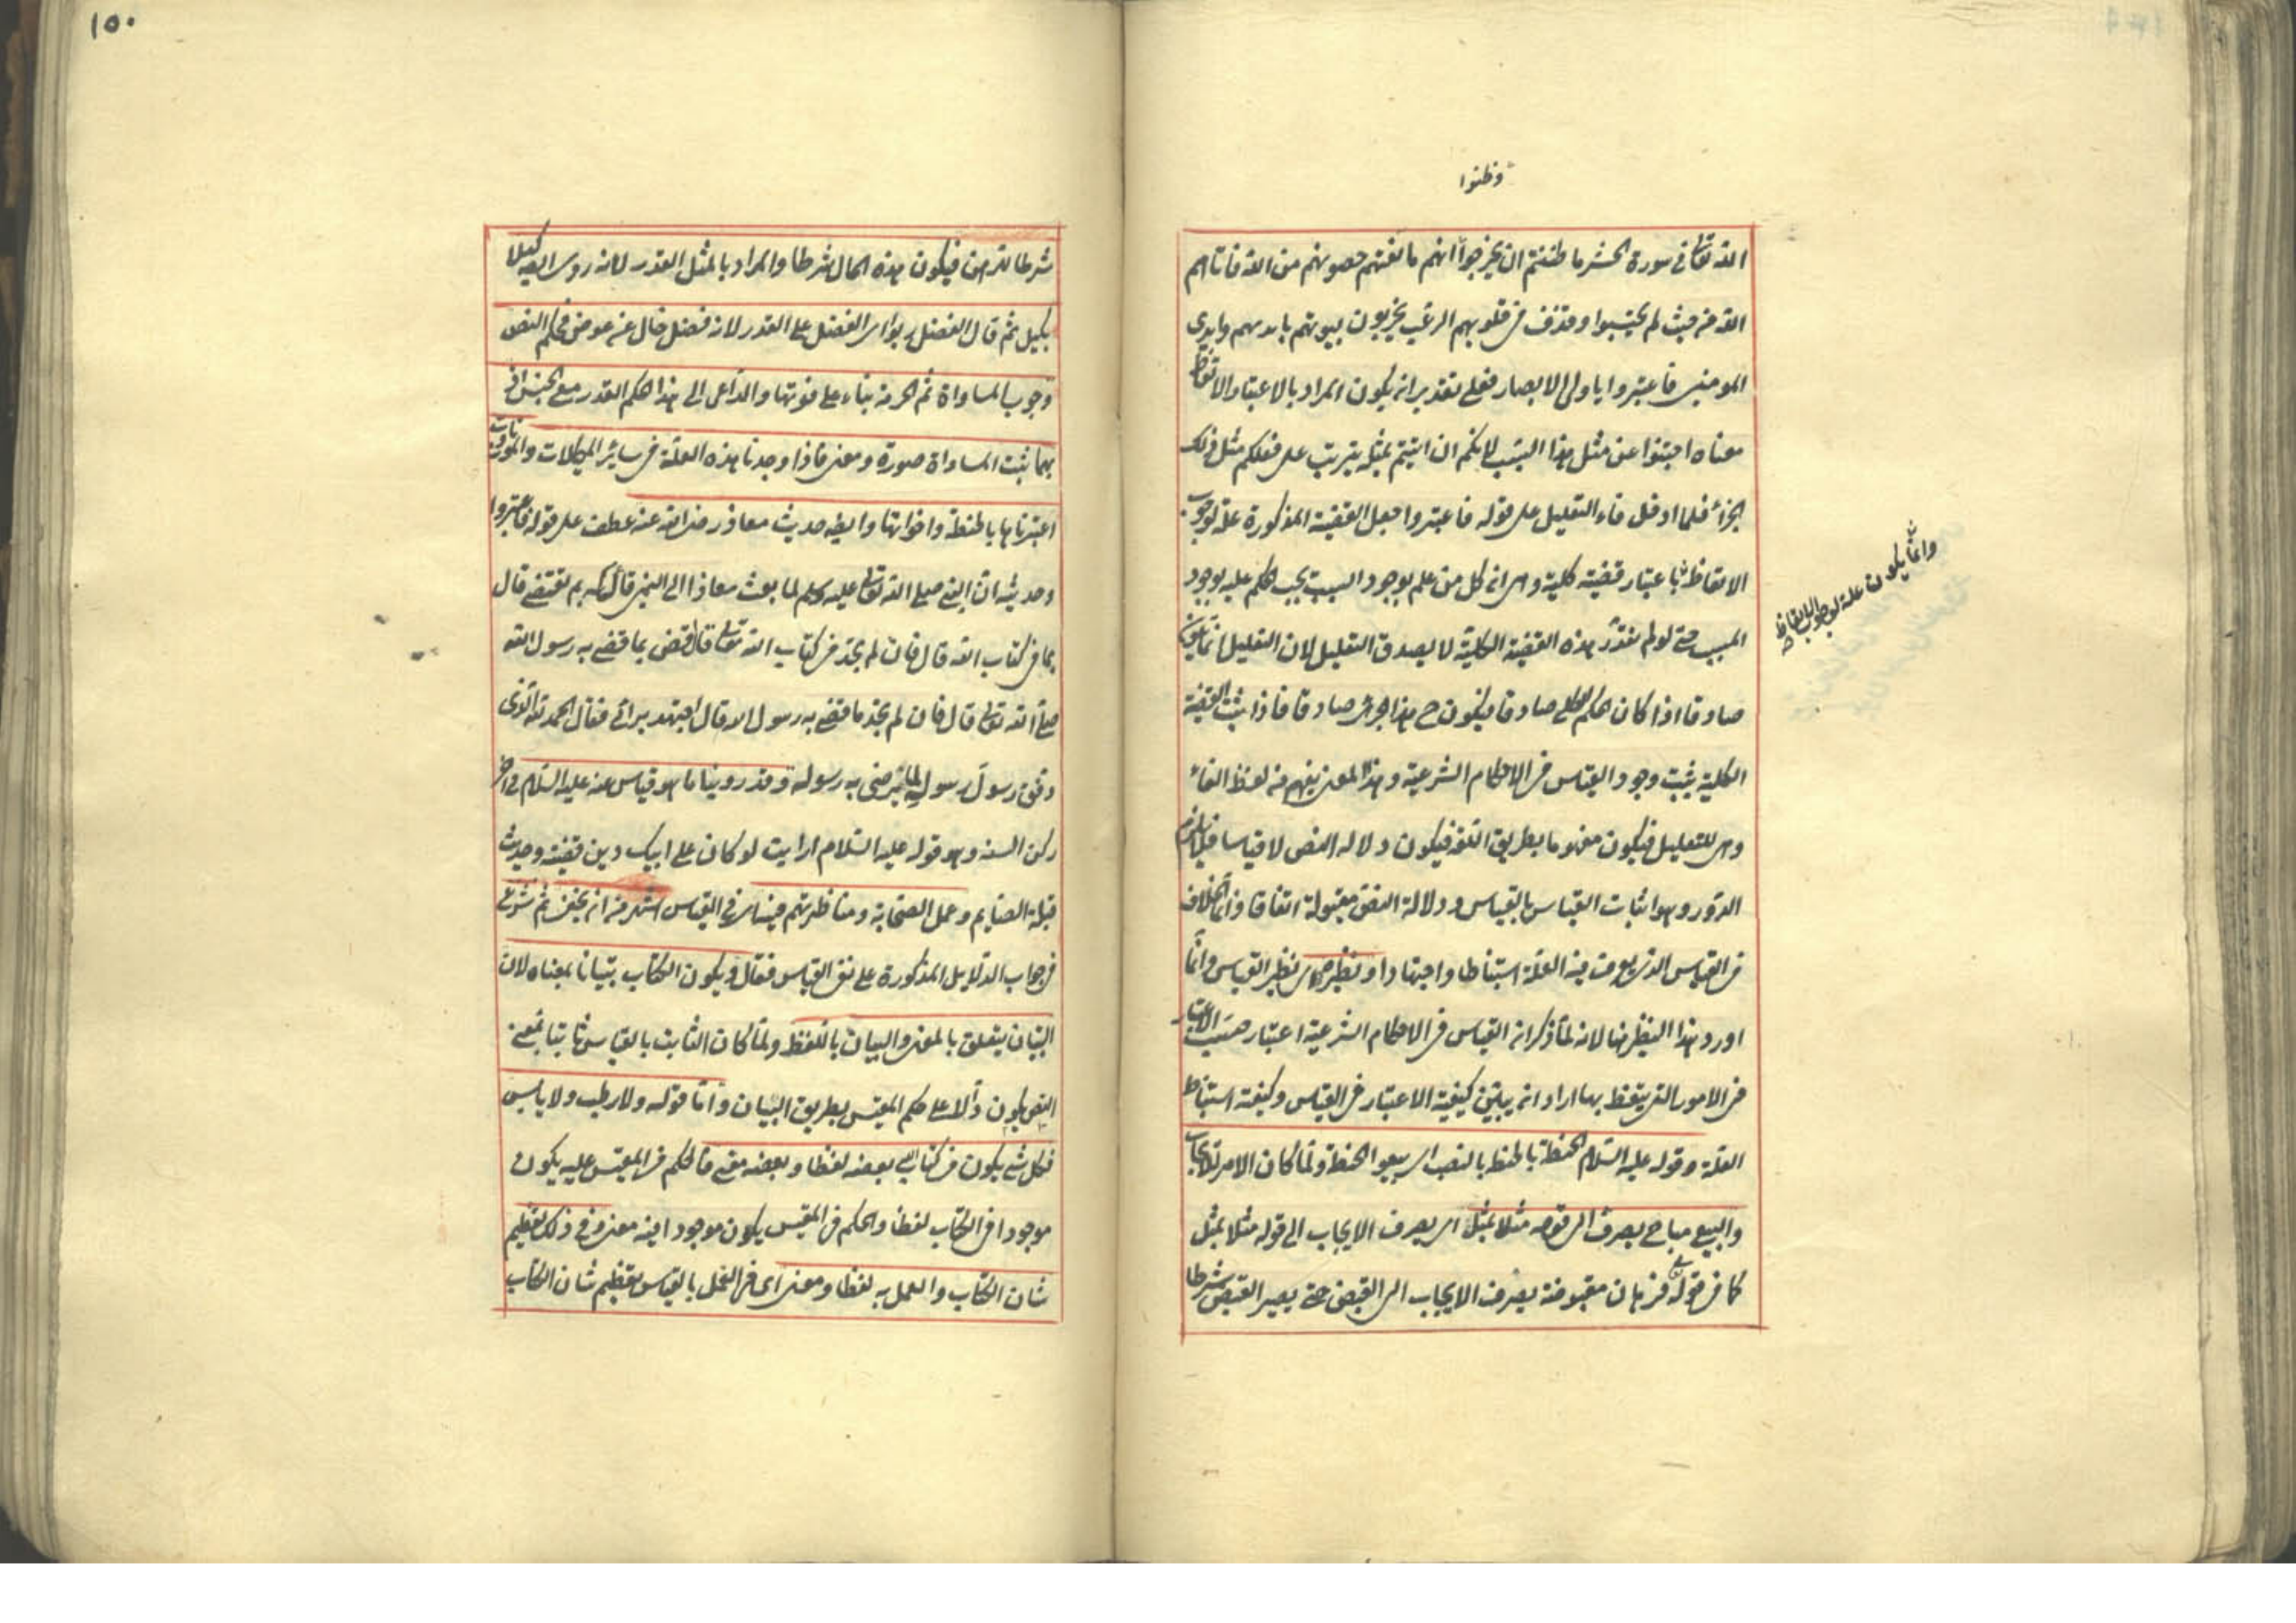 وظنوا
الله تعالى في سورة الحشر ما ظننتم ان يخرجوا انهم مانعتهم حصونهم من الله فاتاهم
الله من حيث لم يحتسبوا وقذف في قلوبهم الرعب يخربون بيوتهم بايديهم وايدي
المومنين فاعتبروا يا اولى الابصار فعلى تقدير ان يكون المراد بالاعتبار الاتعاظ
معناه اجتنبوا عن مثل هذا السبب لانكم ان اتيتم بمثله يترتب على فعلكم مثل ذلك
الجزاء فلما ادخل فاء التعليل على قوله فاعتبروا جعل القضية المذكورة علة لوجوب
الاتعاظ باعتبار قضية كلية وهي ان كل من علم بوجود السبب يجب الحكم عليه بوجود
المسبب حتى لو لم نقدر هذه القضية الكلية لا يصدق التعليل لان التعليل انما يكون
صادقا اذا كان الحكم الكلي صادقا فيكون ح هذا الجزئي صادقا فاذا ثبت القضية
الكلية يثبت وجود القياس في الاحكام الشرعية وهذا المعنى يفهم من لفظ الفاء
وهي للتعليل فيكون مفهوما بطريق اللغة فيكون دلالة النص لا قياسا فلا يلزم
الدور وهو اثبات القياس بالقياس ودلالة النص مقبولة اتفاقا وانما الخلاف
في القياس الذي يعرف فيه العلة استنباطا واجتهادا ونظيره اي نظير القياس وانما
اورد هذا النظير هنا لانه لما ذكر ان القياس في الاحكام الشرعية اعتبار حسب الاعتبار
في الامور التي يتعظ بها اراد ان يبين كيفية الاعتبار في القياس وكيفية استنباط
العلة وقوله عليه السلام الحنطة بالحنطة بالنصب اي بيعوا الحنطة ولما كان الامر للايجاب
والبيع مباح يصرف الى قوله مثلا بمثل اي يصرف الايجاب الى قوله مثلا بمثل
كما في قوله تعالى فرهان مقبوضة يصرف الايجاب الى القبض حتى يصير القبض شرطا
وانما يكون علة لوجوب الاتعاظ
١٥٠
شرطا للرهن فيكون هذه الحال شرطا والمراد بالمثل القدر لانه روى ايضا كيلا
بكيل ثم قال الفضل ربوا اي الفضل على القدر لانه فضل خال عن عوض فحكم النص
وجوب المساواة ثم الحرمة بناء على فوتها والداعي الى هذا الحكم القدر مع الجنس اذ
بهما يثبت المساواة صورة ومعنى فاذا وجدنا هذه العلة في سائر المكيلات والموزونات
اعتبرناها بالحنطة واخواتها وايضا حديث معاذ رضي الله عنه عطف على قوله فاعتبروا
وحديثه ان النبي صلى الله تعالى عليه وسلم لما بعث معاذا الى اليمن قال له بم تقتضي قال
بما في كتاب الله قال فان لم تجد في كتاب الله تعالى قال اقضى بما قضى به رسول الله
صلى الله تعالى قال فان لم تجد ما قضى به رسول الله قال اجتهد برائي فقال الحمد لله الذي
وفق رسول رسوله لما يرضى به رسوله وقد روينا ما هو قياس عنه عليه السلام في اخر
ركن السنة وهو قوله عليه السلام ارايت لو كان على ابيك دين فقضيته وحديث
قبلة الصايم وعمل الصحابة ومناظرتهم فيه اي في القياس اشهر من ان يخفى ثم شرع
في جواب الدلايل المذكورة على نفي القياس فقال ويكون الكتاب تبيانا بمعناه لان
التبيان يتعلق بالمعنى والبيان باللفظ ولما كان الثابت بالقياس ثابتا بمعنى
النص يكون دالا على حكم المقيس بطريق التبيان واما قوله ولا رطب ولا يابس
فكل شئ يكون في كتاب بعضه لفظا وبعضه معنى فالحكم في المقيس عليه يكون
موجودا في الكتاب لفظا والحكم في المقيس يكون موجودا فيه معنى وفي ذلك تعظيم
شان الكتاب والعمل به لفظا ومعنى اي في العمل بالقياس تعظيم شان الكتاب